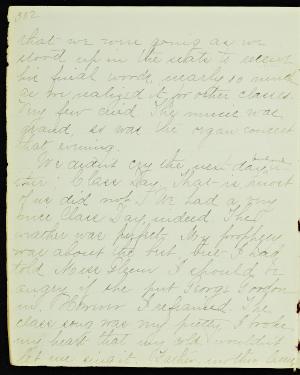 302
that we were going as we
stood up in the seats to receive
his final words, nearly so much
as we realized it for other classes.
Very few cried. The music was
grand, so was the organ concert
that evening.
We didn't cry the next day,
either, Class Day. That is most
of us did not. We had a very
nice Class Day, indeed. The
weather was perfect. My prophecy
was about the but I had
told I should be
angry if she put George Gordon
in. I refrained. The
class song was very pretty. I broke
my heart that my cold wouldn't
let me sing it. Father, mother,